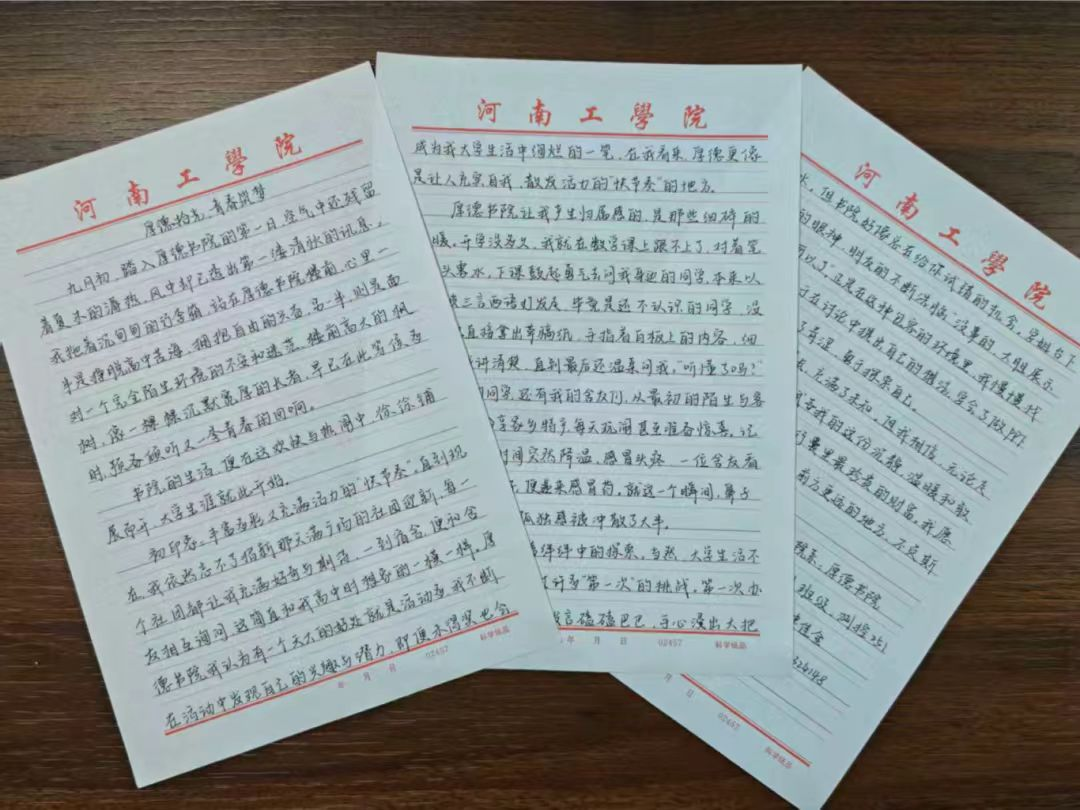 河南工學院
厚德拾光,青春筑梦
九月初,踏入厚德书院的第一日,空气中还残留
着夏末的潘热,风中却已透出第一缕清秋的讯息。
我拖着沉甸甸的行李箱,站在厚德书院楼前,心里一
半是挣脱高中苦海,拥抱自由的兴奋,另一半,则是面
对一个完全陌生环境的不安和迷茫。楼前高大的枫
树,像一棵棵沉默宽厚的长者,早已在此驾信多
时,预备倾听又一季青春的回响。
书院的生活,便在这欢快与热闹中,徐徐铺
展而开,大学生涯就此开始。
初印象:丰富多彩又充满活力的“快节奏”。直到现
在,我依然忘不了招新那天满广场的社团迎新,每一
个社团都让我充满好奇与期待,一到宿舍,便和舍
友相互询问,这简直和我高中时想象的一模一样。厚
德书院,我认为有一个天大的好处就是活动多,我不断
在活动中发现自己的兴趣与潜力,即便不得奖也会
年 月 日 02457 科学纸品
河南工學院
成为我大学生活中绚烂的一笔,在我看来,厚德更像
是让人充实自我、散发活力的“快节奏”的地方。
厚德书院让我产生归属感的,是那些细碎的
暖,开学没多久,我就在数学课上跟不上了,对着笔
头雾水,下课鼓起勇气去问我身边的同学,本来以
三言两语打发走,毕竟是还不认识的同学,没
直接拿出草稿纸,手指着白板上的内容,细
讲清楚,直到最后还温柔问我,“听懂了吗?”
同窗,还有我的舍友们,从最初的陌生与客
享家乡特产,每天玩闹甚至准备惊喜,记
时间突然降温,感冒头疼,一位舍友看
,便递来感冒药,就这一个瞬间,鼻子
孤独感被冲散了大半。
绊绊中的探索,当然,大学生活不
计多“第一次”的挑战,第一次办
发言磕磕巴巴,手心浸出大把
年 月 日 02457 科学纸品
河南工學院
水,但书院好像总在给你试错的机会,学姐台下
的眼神,朋友的不断洗脑,没事的,大胆展示
可以了,正是在这种包容的环境里,我慢慢找
在讨论中提出自己的想法,学会了做PPT
了青涩,勇于探索自己。
,充满了未知,但我相信,无论走
予我的这份沉静、温暖和教
行囊里最珍贵的财富。我愿
前方更远的地方,不负斯
院系:厚德书院
班级:测控251
324148
月 日 02457 科学纸品